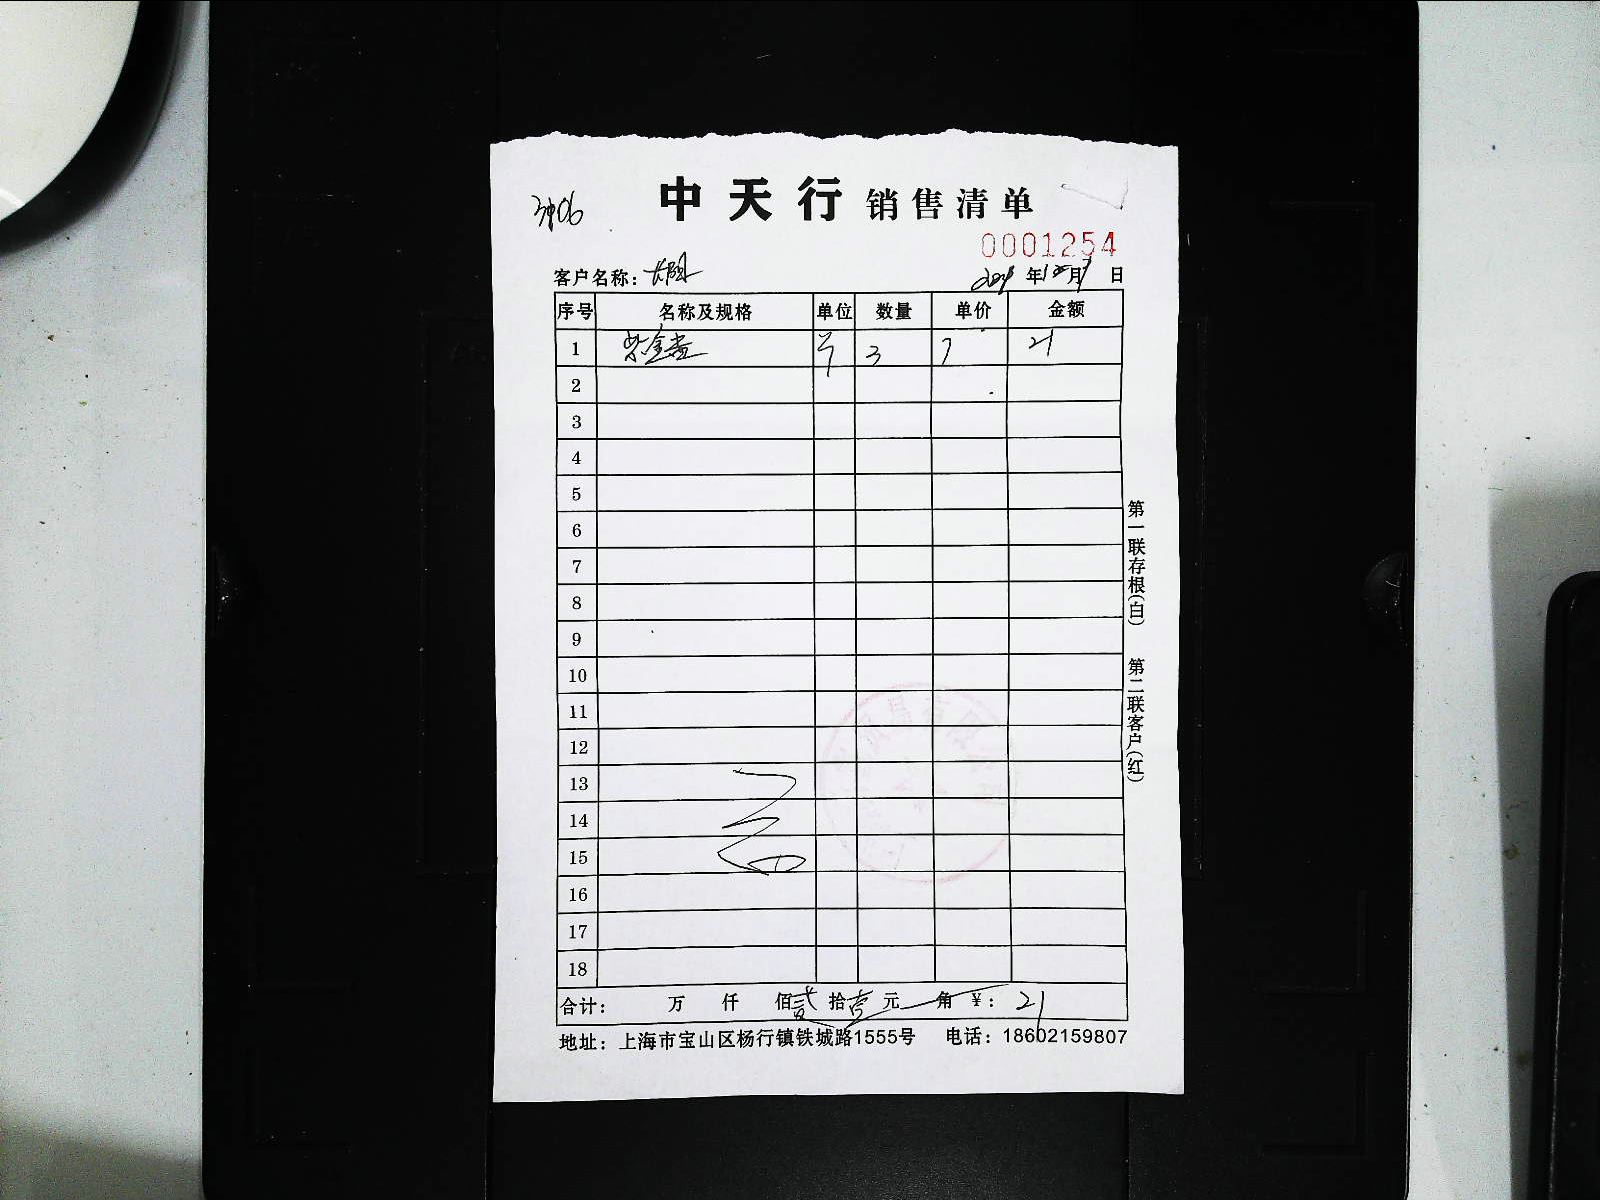 中天行 销售清单
0001254
客户名称： 年 月 日
序号 名称及规格 单位 数量 单价 金额
1 3 7 21
2
3
4
5
6
7
8
9
10
11
12
13
14
15
16
17
18
合计： 万 仟 佰贰拾壹元 角 ¥：21
地址：上海市宝山区杨行镇铁城路1555号 电话：18602159807
第一联存根(白) 第二联客户(红)